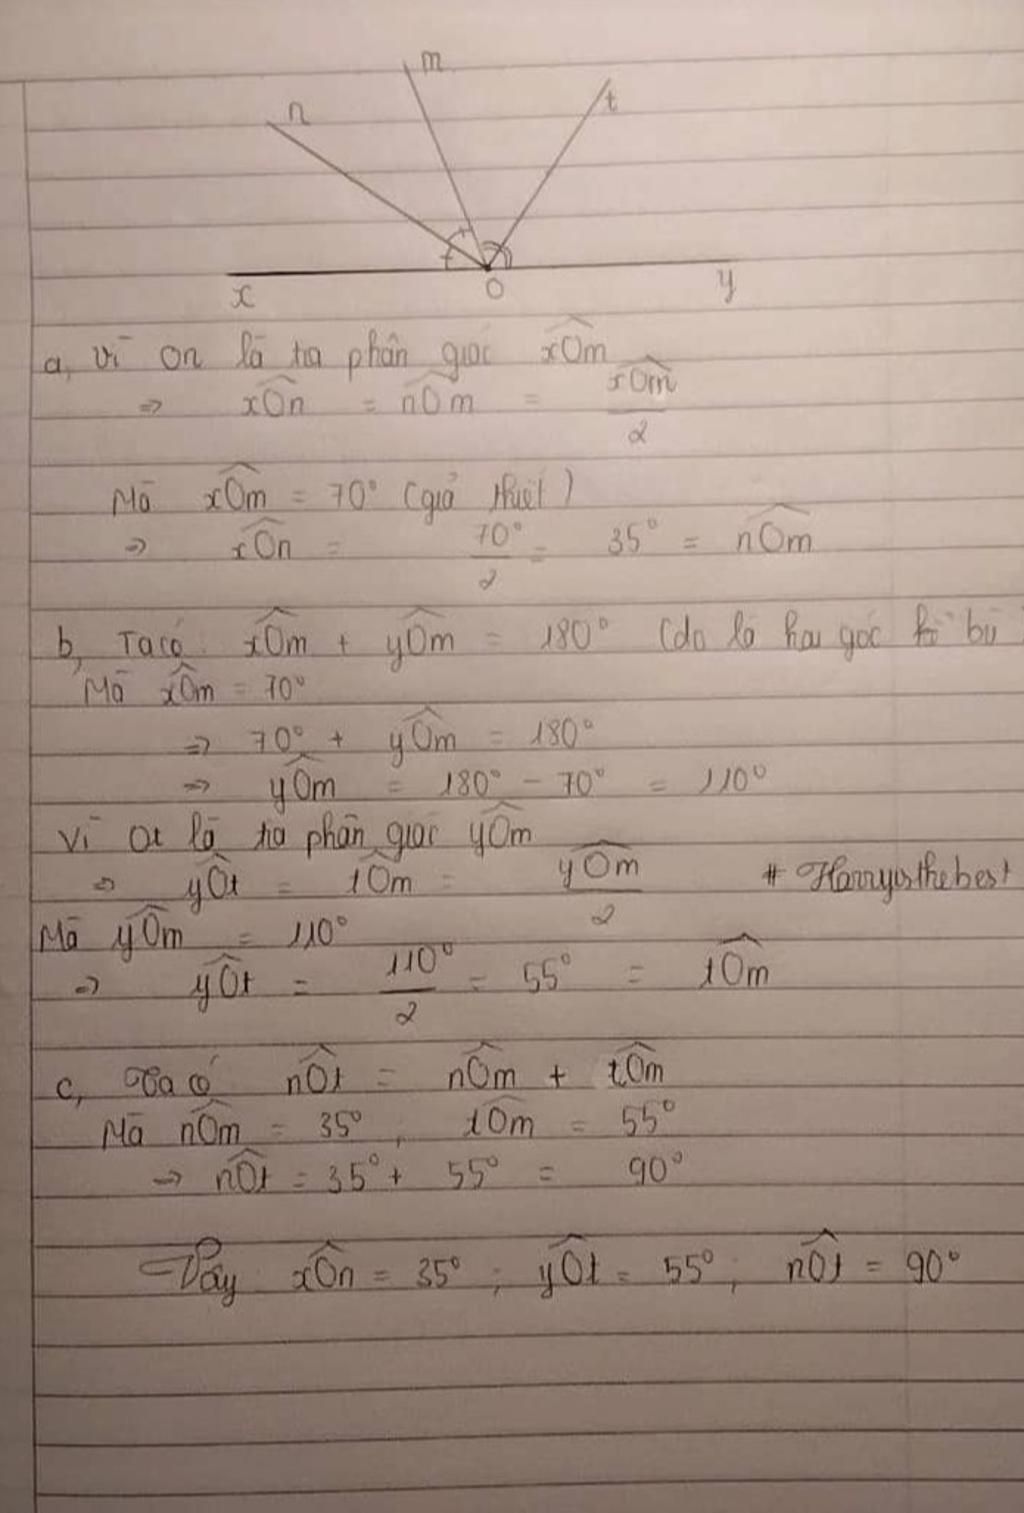 m
n
t
x
O
y
a, Vì On là tia phân giác xOm
=> xOn = nOm = xOm/2
Mà xOm = 70° (giả thiết)
=> xOn = 70°/2 = 35° = nOm
b, Ta có: xOm + yOm = 180° (do là hai góc kề bù
Mà xOm = 70°
=> 70° + yOm = 180°
=> yOm = 180° - 70° = 110°
Vì Ot là tia phân giác yOm
=> yOt = tOm = yOm/2 # Harryisthebest
Mà yOm = 110°
=> yOt = 110°/2 = 55° = tOm
c, Ta có nOt = nOm + tOm
Mà nOm = 35°, tOm = 55°
=> nOt = 35° + 55° = 90°
Vậy xOn = 35°; yOt = 55°; nOt = 90°